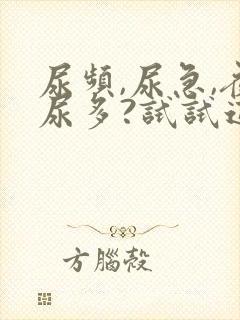 尿頻,尿急,夜
尿多?試試這
方腦殼